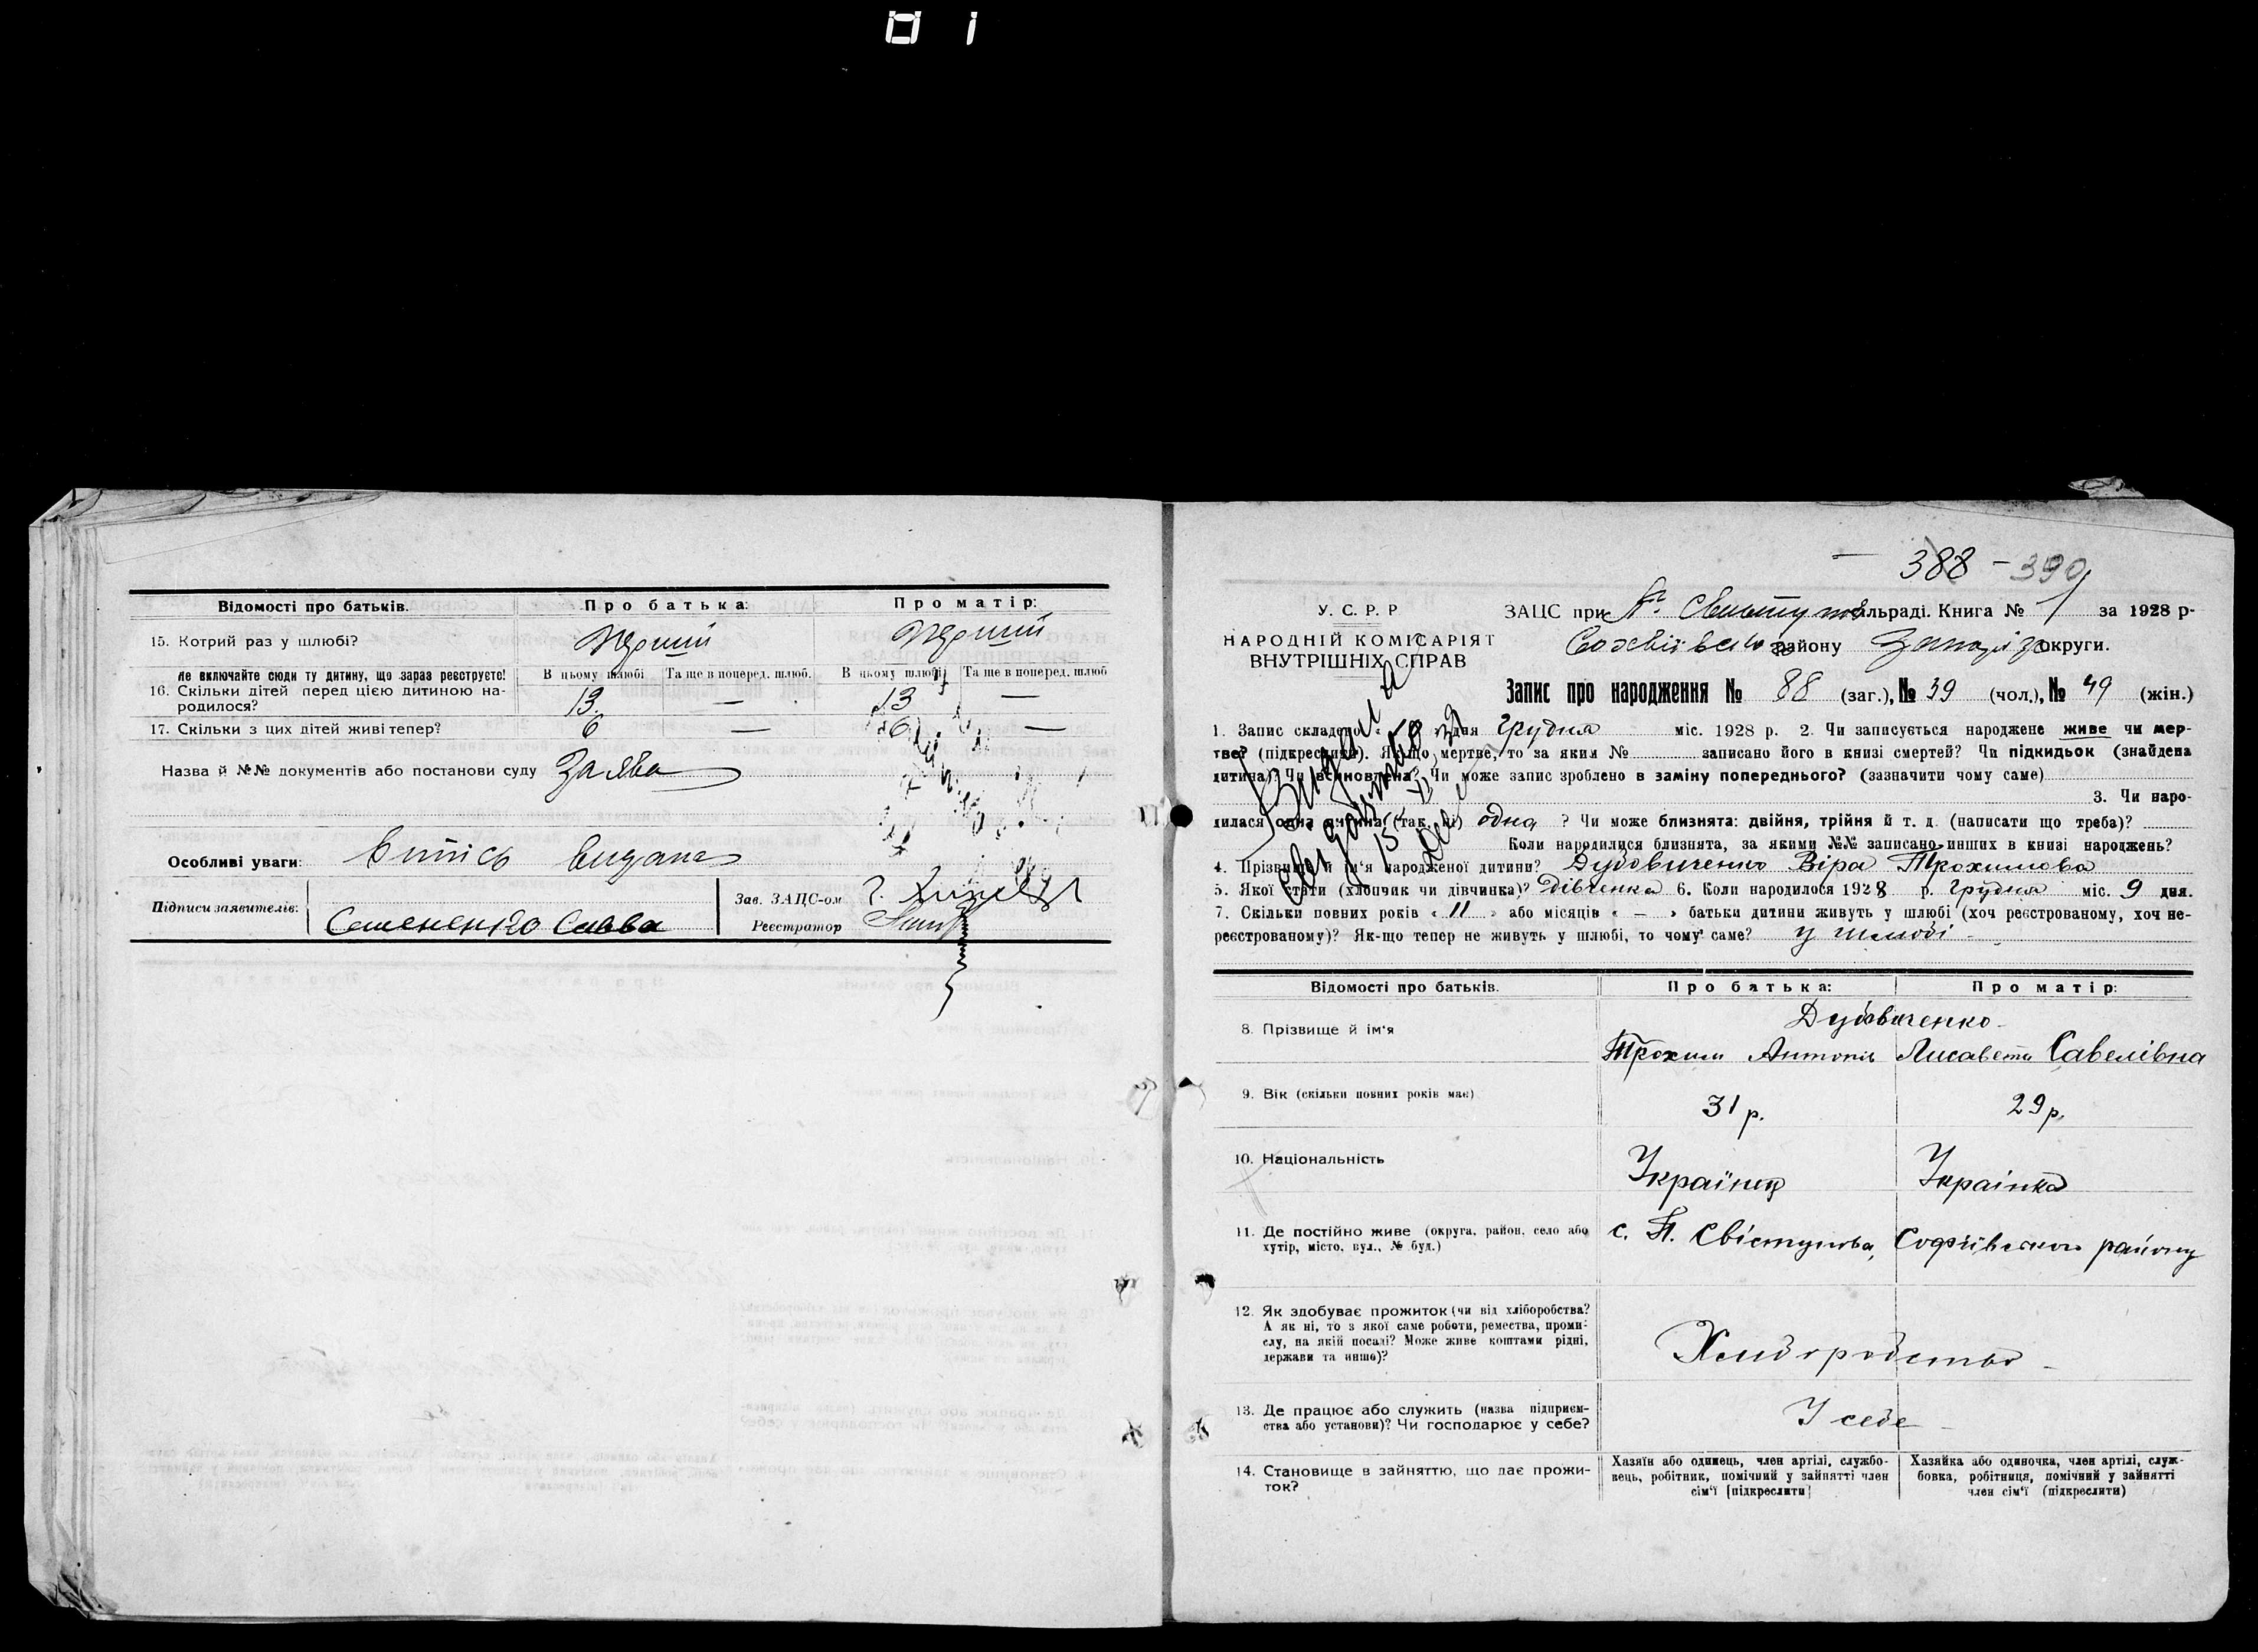 Відомості про батьків. Про батька: Про матір:
15. Котрий раз у шлюбі? Перший Перший
Не включайте сюди ту дитину, що зараз реєструєте! В цьому шлюбі Та ще в поперед. шлюб. В цьому шлюбі Та ще в поперед. шлюб
16. Скільки дітей перед цією дитиною на-
родилося? 13. — 13 —
17. Скільки з цих дітей живі тепер? 6 — 6 —
Назва й №№ документів або постанови суду Заява
Особливі уваги: Витісь видана
Підписи заявителів: Семененко Савва
Зав. ЗАЦС-ом
Реєстратор
388 - 390
У. С. Р. Р
НАРОДНІЙ КОМІСАРІЯТ
ВНУТРІШНІХ СПРАВ
ЗАЦС при сільраді. Книга № 1 за 1928 р-
району округи.
Запис про народження № 88 (заг.), № 39 (чол.), № 49 (жін.)
1. Запис складено дня Грудня міс. 1928 р. 2. Чи записується народжене живе чи мер-
тве? (підкреслити). Якщо мертве, то за яким № записано його в книзі смертей? Чи підкидьок (знайдена
дитина)? Чи всиновлена? Чи може запис зроблено в заміну попереднього? (зазначити чому саме)
3. Чи наро-
дилася одна дитина (так, ні) одна ? Чи може близнята: двійня, трійня й т. д. (написати що треба)?
Коли народилися близнята, за якими №№ записано инших в книзі народжень?
4. Прізвище й ім'я народженої дитини? Дудовиченко Віра Трохимова
5. Якої статі (хлопчик чи дівчинка)? Дівченка 6. Коли народилося 1928 р. Грудня міс. 9 дня.
7. Скільки повних років « 11 » або місяців « — » батьки дитини живуть у шлюбі (хоч реєстрованому, хоч не-
реєстрованому)? Як-що тепер не живуть у шлюбі, то чому саме? у шлюбі -
Відомості про батьків. Про батька: Про матір:
8. Прізвище й ім'я
Трохим Антонів Лисавета Савелівна
9. Вік (скільки повних років має) 31 р. 29 р.
10. Національність Українец Українка
11. Де постійно живе (округа, район, село або
хутір, місто, вул., № буд.) с. П. Свістунова, Софіівського району
12. Як здобуває прожиток (чи від хліборобства?
А як ні, то з якої саме роботи, ремества, проми-
слу, на якій посаді? Може живе коштами рідні,
держави та инше)?
13. Де працює або служить (назва підприєм-
ства або установи)? Чи господарює у себе? У себе -
14. Становище в зайняттю, що дає прожи-
ток?
Хазяїн або одинець, член артілі, службо-
вець, робітник, помічний у зайнятті член
сім'ї (підкреслити)
Хазяйка або одиночка, член артілі, служ-
бовка, робітниця, помічний у зайнятті
член сім'ї (підкреслити)